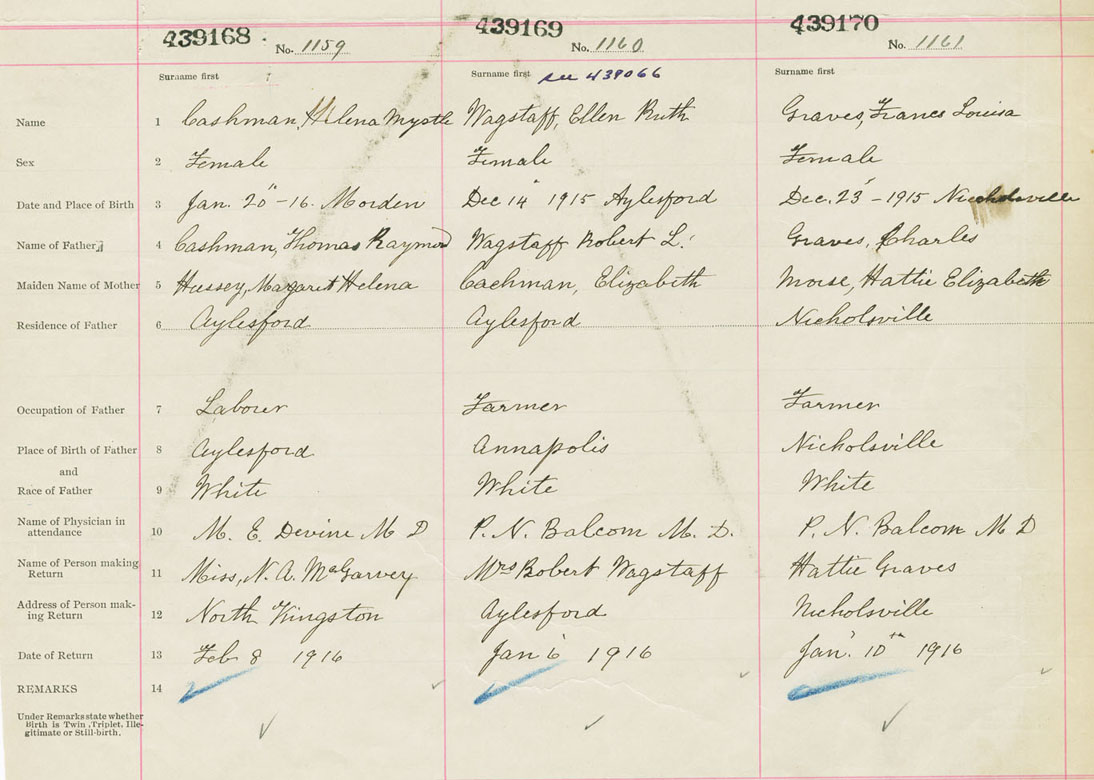 439168 No. 1159 439169 No. 1160 439170 No. 1161
Surname first Surname first see 439066 Surname first
Name 1 Cashman, Helena Myrtle Wagstaff, Ellen Ruth Graves, Frances Louisa
Sex 2 Female Female Female
Date and Place of Birth 3 Jan. 20" - 16. Morden Dec 14" 1915 Aylesford Dec. 23" - 1915 Nicholsville
Name of Father 4 Cashman, Thomas Raymond Wagstaff Robert L. Graves, Charles
Maiden Name of Mother 5 Hussey, Margaret Helena Cachman, Elizabeth Morse, Hattie Elizabeth
Residence of Father 6 Aylesford Aylesford Nicholsville
Occupation of Father 7 Labourer Farmer Farmer
Place of Birth of Father 8 Aylesford Annapolis Nicholsville
and
Race of Father 9 White White White
Name of Physician in
attendance 10 M. E. Devine M D P. N. Balcom M. D. P. N. Balcom M D
Name of Person making
Return 11 Miss, N. A. McGarvey Mrs Robert Wagstaff Hattie Graves
Address of Person mak-
ing Return 12 North Kingston Aylesford Nicholsville
Date of Return 13 Feb 8 1916 Jan 6 1916 Jan. 10th 1916
REMARKS 14
Under Remarks state whether
Birth is Twin, Triplet, Ille-
gitimate or Still-birth.